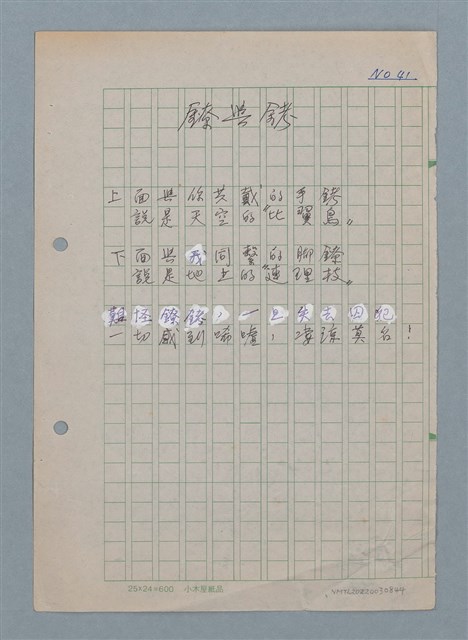 NO 41.
鐐與銬
上面與你共戴的手銬
說是天空的"比翼鳥"
下面與我同繫的腳鐐
說是地上的"連理枝"
難怪鐐銬，一旦失去囚犯
一切感到唏噓，淒涼莫名！
25×24=600 小木屋紙品
NMTL20220030844